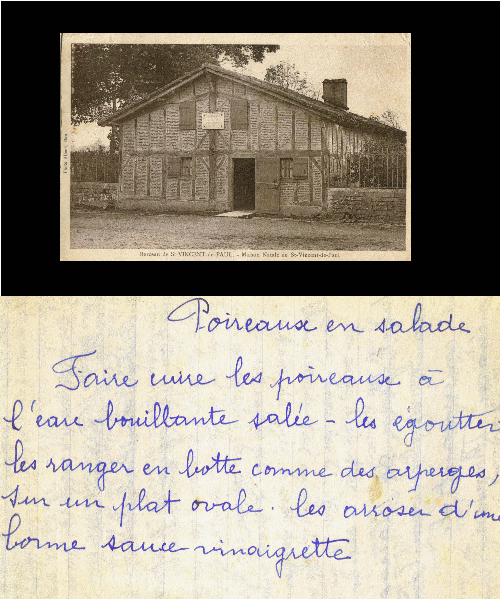 Berceau de St-VINCENT de PAUL. - Maison Natale de St-Vincent-de-Paul
Poireaux en salade
Faire cuire les poireaux à
l'eau bouillante salée - les égoutter
les ranger en botte comme des asperges,
sur un plat ovale. les arroser d'une
bonne sauce vinaigrette